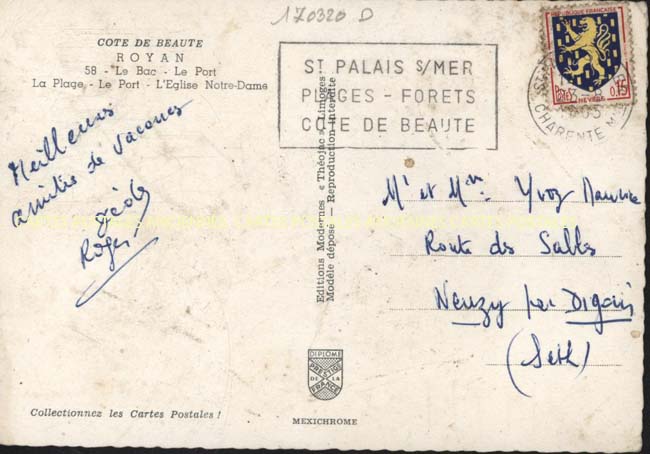 170320 D
COTE DE BEAUTE
ROYAN
58 - Le Bac - Le Port
La Plage - Le Port - L'Eglise Notre-Dame
Meilleures
amitiés de Jacques
Roger
Collectionnez les Cartes Postales !
Editions Modernes « Théojac » Limoges
Modèle déposé - Reproduction interdite
DIPLOME
PRESTIGE
DE LA
FRANCE
MEXICHROME
ST PALAIS S/MER
PLAGES - FORETS
COTE DE BEAUTE
REPUBLIQUE FRANÇAISE
POSTES
NEVERS
0,15
CHARENTE Mme
Mr et Mme Yvoz Maurice
Route des Sables
Neuzy par Digoin
(S et L)